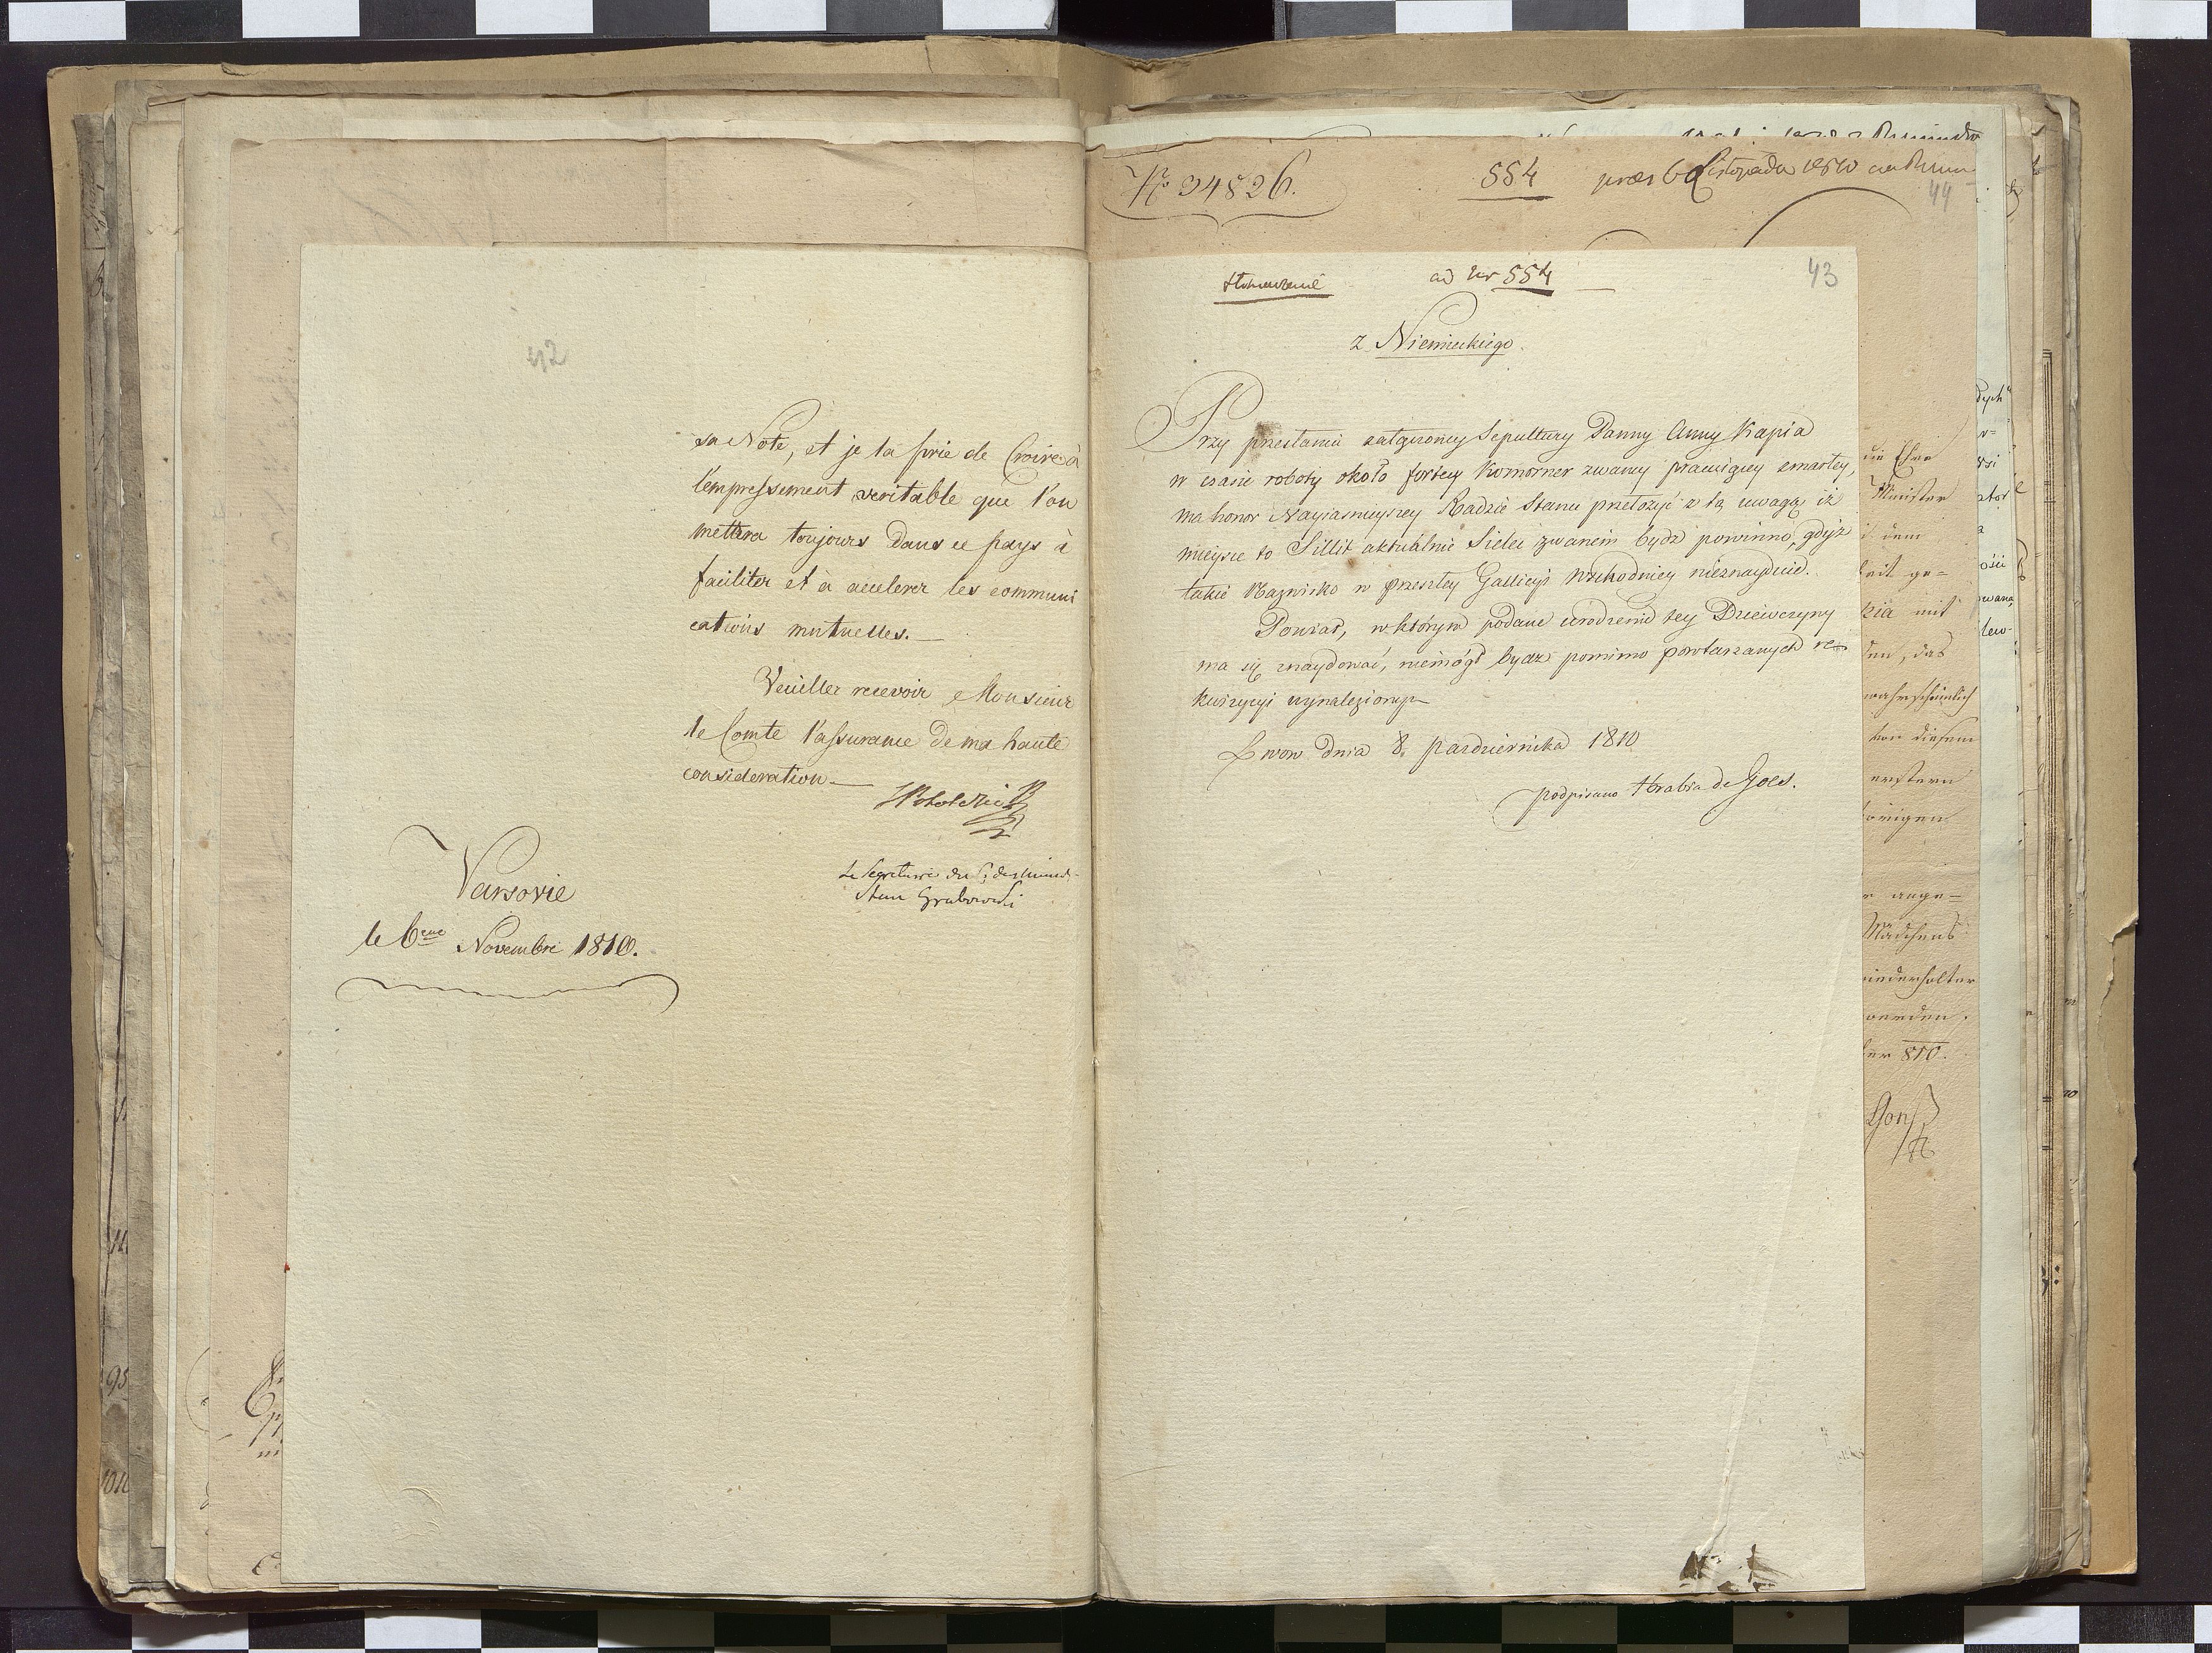 42
sa Note, et je la prie de Croire à
l'empressement veritable que l'on
mettera toujours dans ce pays à
faciliter et à accelerer les communi
cations mutuelles.—
Veuillez recevoir Monsieur
le Comte l'assurance de ma haute
consideration—
Le Segretaire du
Stan Grabowski
Varsovie
le 6eme Novembre 1810.
No 34826.
554
præs 6 Listopada 1810
44
tłomaczenie
ad Nr 554
43
z Niemieckiego.
Przy przesłaniu Sepultury Panny Anny Kapia
w czasie roboty około fortecy Komorner zwaney pracuiącey zmarłey,
ma honor Nayiasnieyszey Radzie Stanu przełożyć z tą uwagą iż
mieysce to Sillit aktualnie Sielei zwanem bydz powinno, gdyż
takie Nazwisko w przeszłey Gallicyi Wschodniey nieznayduie.
Powiat, w którym podane urodzenie tey Dziewczyny
ma się znaydować, niemógł bydz pomimo powtarzanych re-
kwizycyi wynaleziony
Lwow dnia 8. pazdziernika 1810
podpisano Hrabia de Goes.
die Ehre
Minister
dem
ge=
mit
das
wahrscheinlich
von diesem
erstern
ange=
Mädchens
wiederholter
werden.
810.